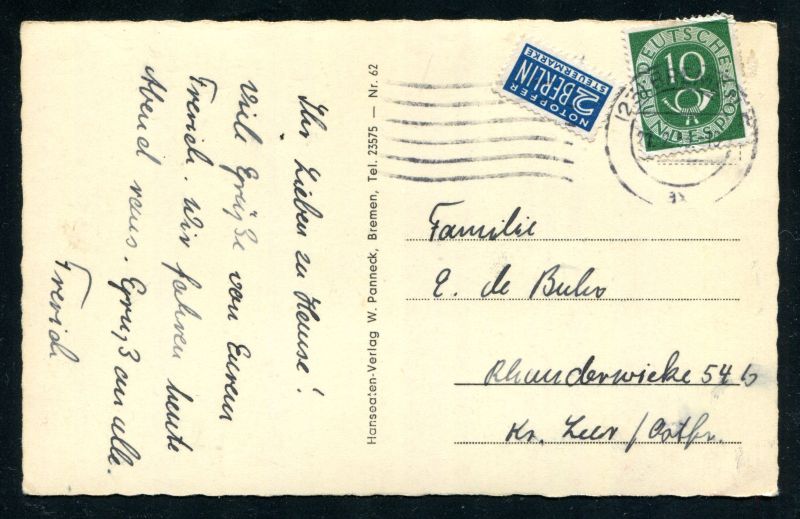 Ihr Lieben zu Hause!
Viele Grüße von Eurem
Frerich. Wir fahren heute
Abend raus. Gruß an alle.
Frerich
Hanseaten-Verlag W. Panneck, Bremen, Tel. 23575 — Nr. 62
NOTOPFER
2 BERLIN
STEUERMARKE
DEUTSCHE
10
BUNDESPOST
Familie
E. de Buhr
Rhauderwieke 54 b
Kr. Leer / Ostfr.